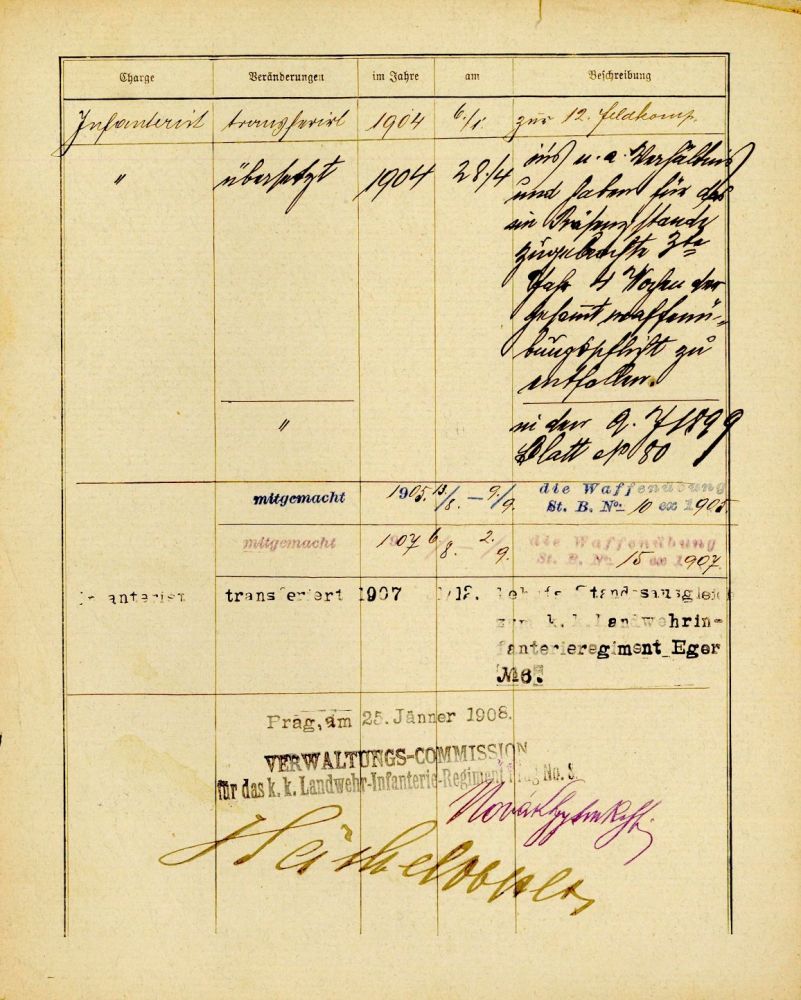 Charge Veränderungen im Jahre am Beschreibung
Infanterist transferirt 1904 6./1. zur 12. Feldkomp.
" übersetzt 1904 28./4 ins u. a. Verhältnis
und haben für das
im Präsenzstande
zugebrachte 3te
Jahr 4 Wochen der
gesamt waffenü-
bungspflicht zu
entfallen.
"
Blatt No 80
mitgemacht 1905. 13./8. – 9./9. die Waffenübung
St. B. No. 10 ex 1905.
mitgemacht 1907 6/8. – 2./9. die Waffenübung
St. B. No. 15 ex 1907.
Infanterist transferiert 1907 1/12. behufs Standesausgleich
zum k.k. Landwehrin-
fanterieregiment Eger
No 6.
Prag, am 25. Jänner 1908.
VERWALTUNGS-COMMISSION
für das k. k. Landwehr-Infanterie-Regiment Prag No. 8.